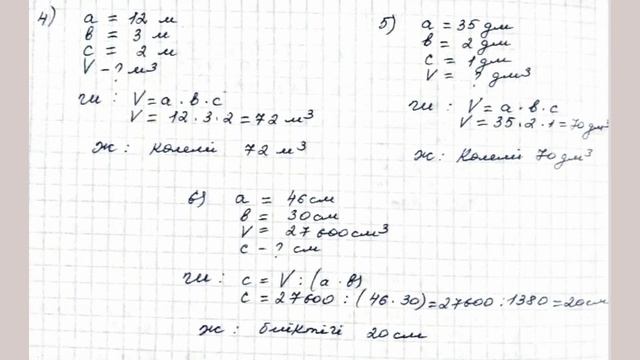 4) a = 12 м
в = 3 м
с = 2 м
V - ? м³
ши: V = a · в · с
V = 12 · 3 · 2 = 72 м³
Ж: көлемі 72 м³
5) a = 35 дм
в = 2 дм
с = 1 дм
V = ? дм³
ши: V = a · в · с
V = 35 · 2 · 1 = 70 дм³
Ж: Көлемі 70 дм³
6) a = 46 см
в = 30 см
V = 27 600 см³
с - ? см
ши: с = V : (a · в)
с = 27600 : (46 · 30) = 27600 : 1380 = 20 см
Ж: биіктігі 20 см